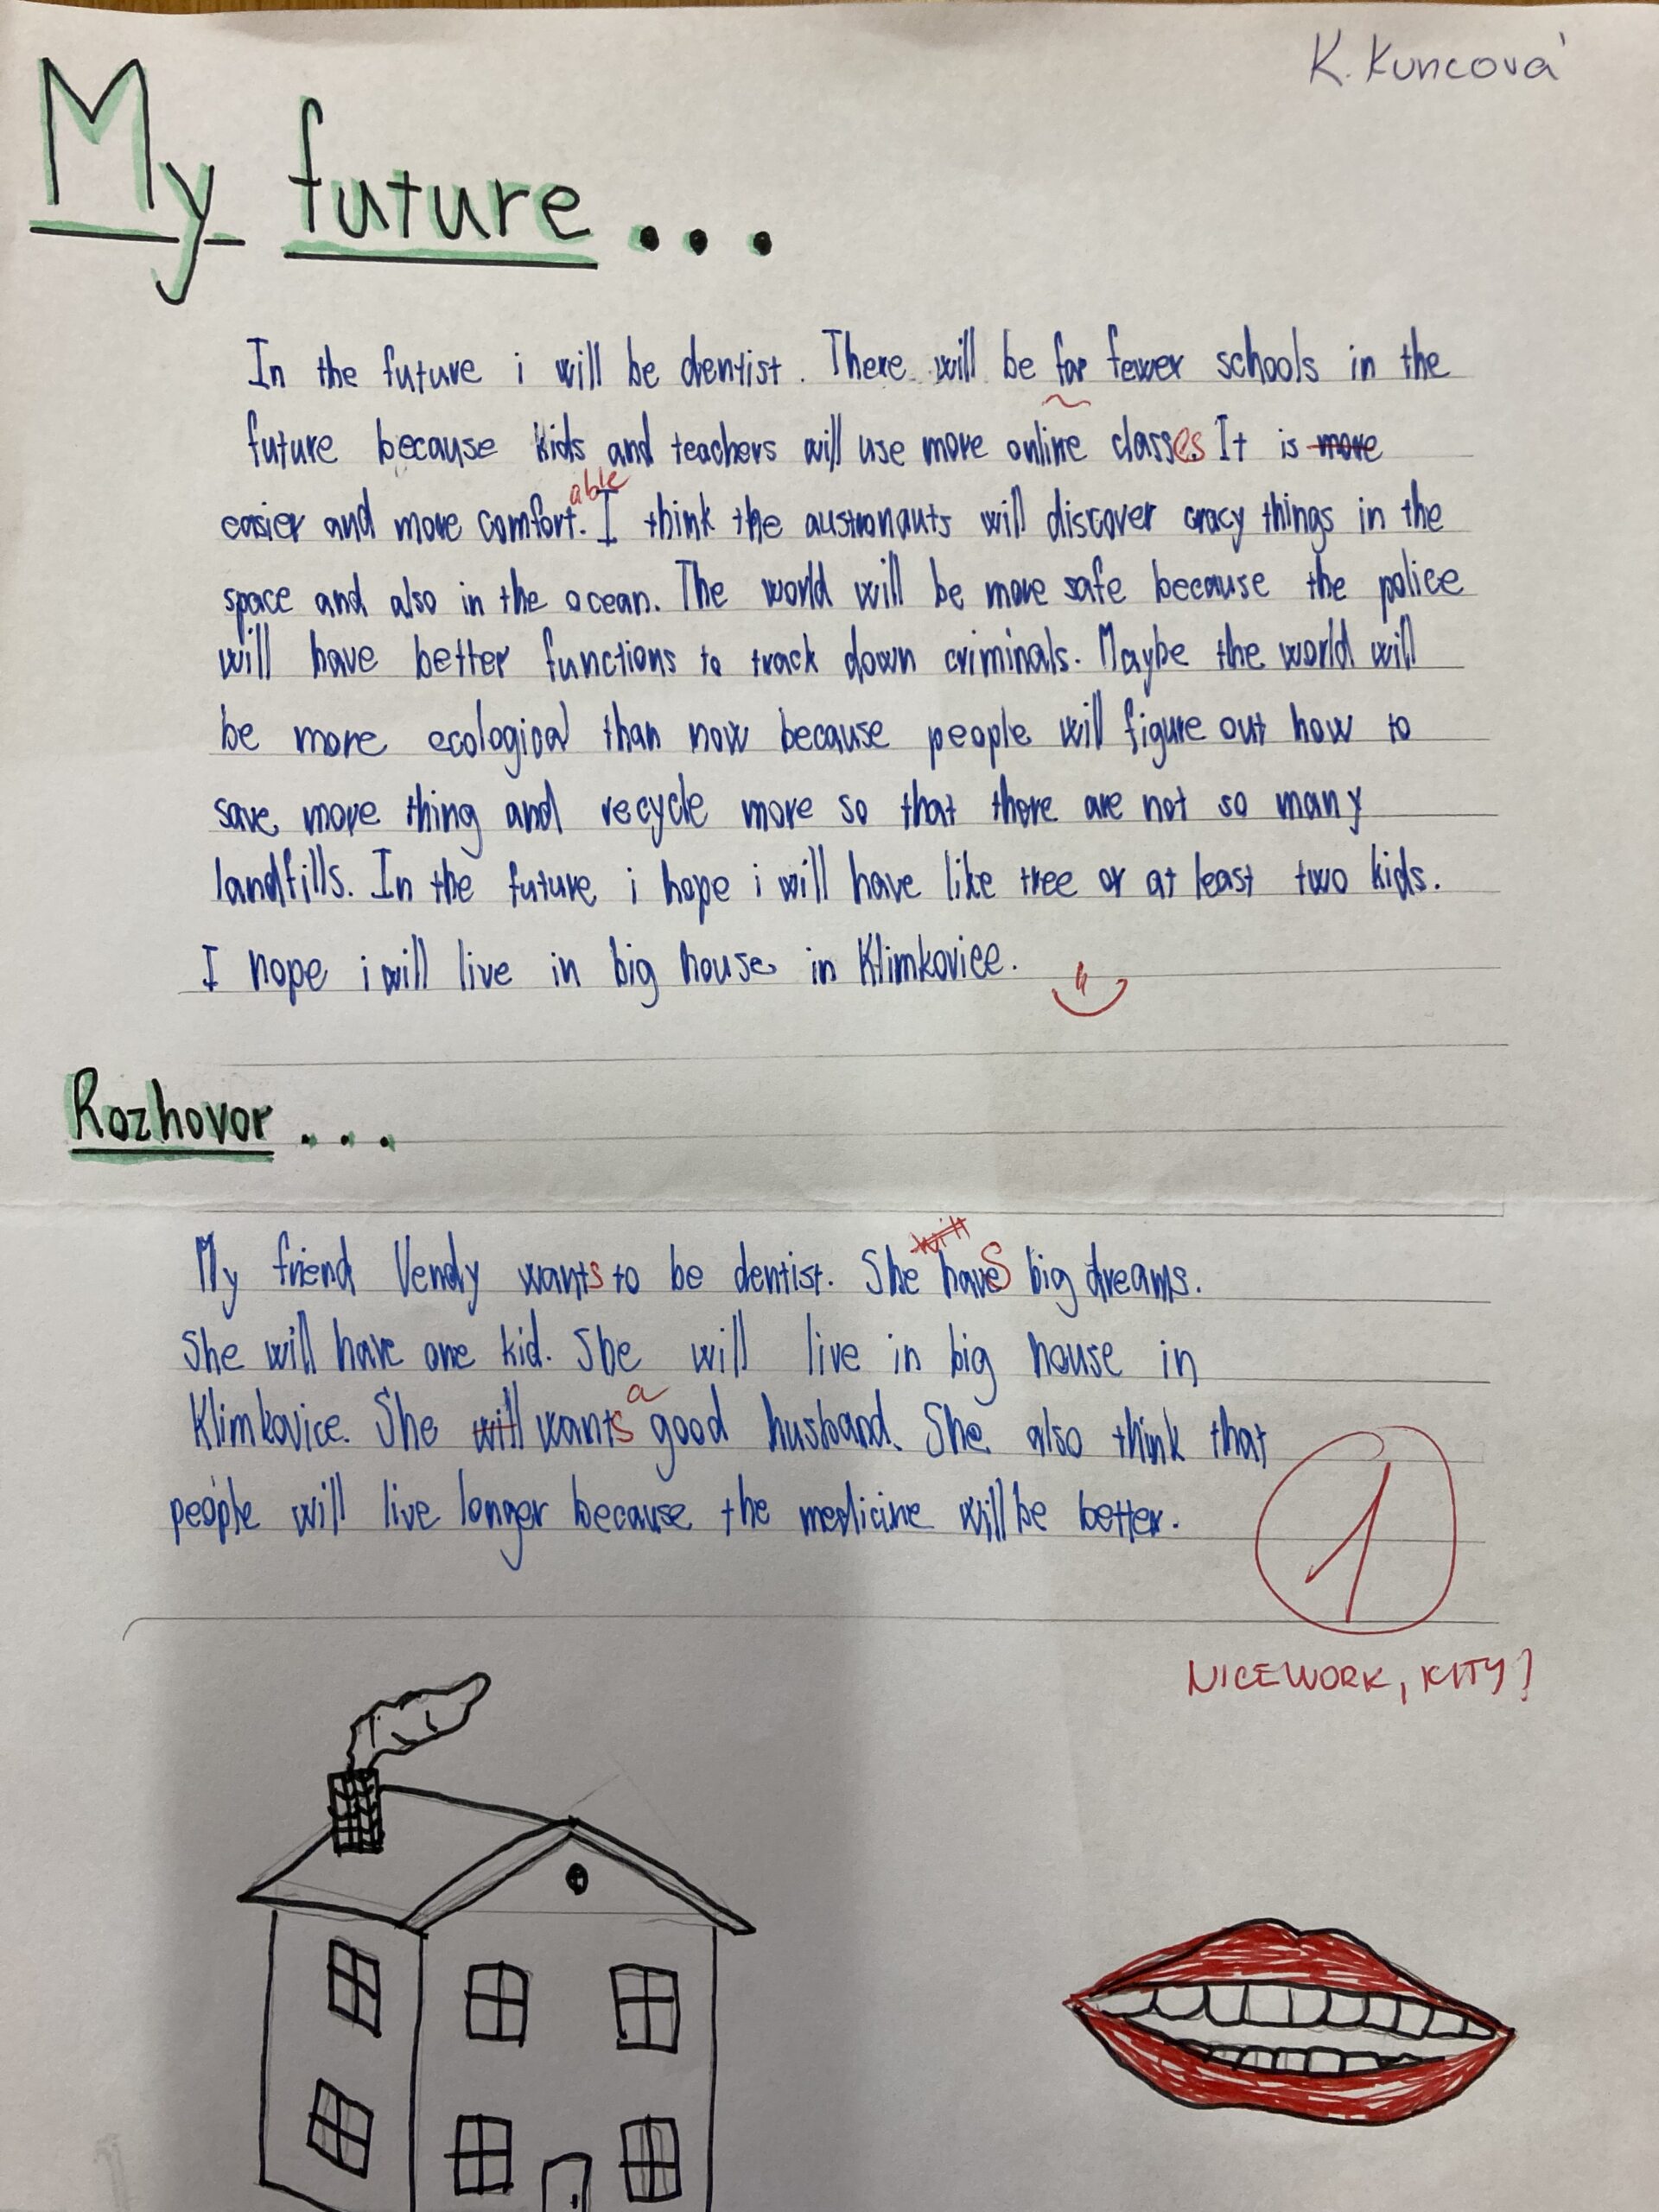 K. Kuncová
My future...
In the future i will be dentist. There will be far fewer schools in the
future because kids and teachers will use more online classes It is more
able
easier and more comfort. I think the austronauts will discover cracy things in the
space and also in the ocean. The world will be more safe because the police
will have better functions to track down criminals. Maybe the world will
be more ecological than now because people will figure out how to
save more thing and recycle more so that there are not so many
landfills. In the future i hope i will have like tree or at least two kids.
I hope i will live in big house in Klimkovice.
Rozhovor...
will
My friend Vendy wants to be dentist. She haveS big dreams.
She will have one kid. She will live in big house in
a
Klimkovice. She will wants good husband. She also think that
people will live longer because the medicine will be better.
1
NICE WORK, KITY!